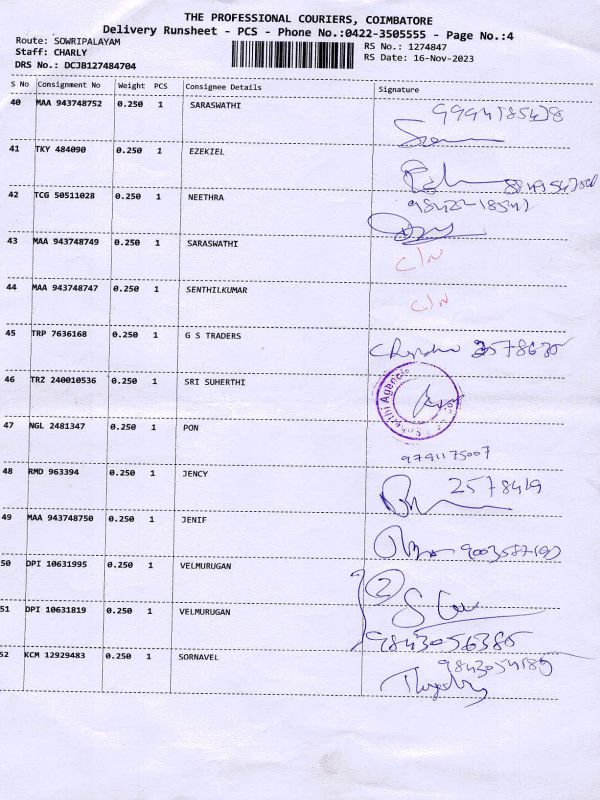 THE PROFESSIONAL COURIERS, COIMBATORE
Delivery Runsheet - PCS - Phone No.:0422-3505555 - Page No.:4
Route: SOWRIPALAYAM
RS No.: 1274847
Staff: CHARLY
RS Date: 16-Nov-2023
DRS No.: DCJB127484704
S No Consignment No Weight PCS Consignee Details Signature
40 MAA 943748752 0.250 1 SARASWATHI
41 TKY 484090 0.250 1 EZEKIEL
42 TCG 50511028 0.250 1 NEETHRA
43 MAA 943748749 0.250 1 SARASWATHI C/N
44 MAA 943748747 0.250 1 SENTHILKUMAR C/N
45 TRP 7636168 0.250 1 G S TRADERS
46 TRZ 240010536 0.250 1 SRI SUHERTHI
47 NGL 2481347 0.250 1 PON
9791175007
48 RMD 963394 0.250 1 JENCY 2578419
49 MAA 943748750 0.250 1 JENIF
50 DPI 10631995 0.250 1 VELMURUGAN 2
51 DPI 10631819 0.250 1 VELMURUGAN
9843056385
52 KCM 12929483 0.250 1 SORNAVEL